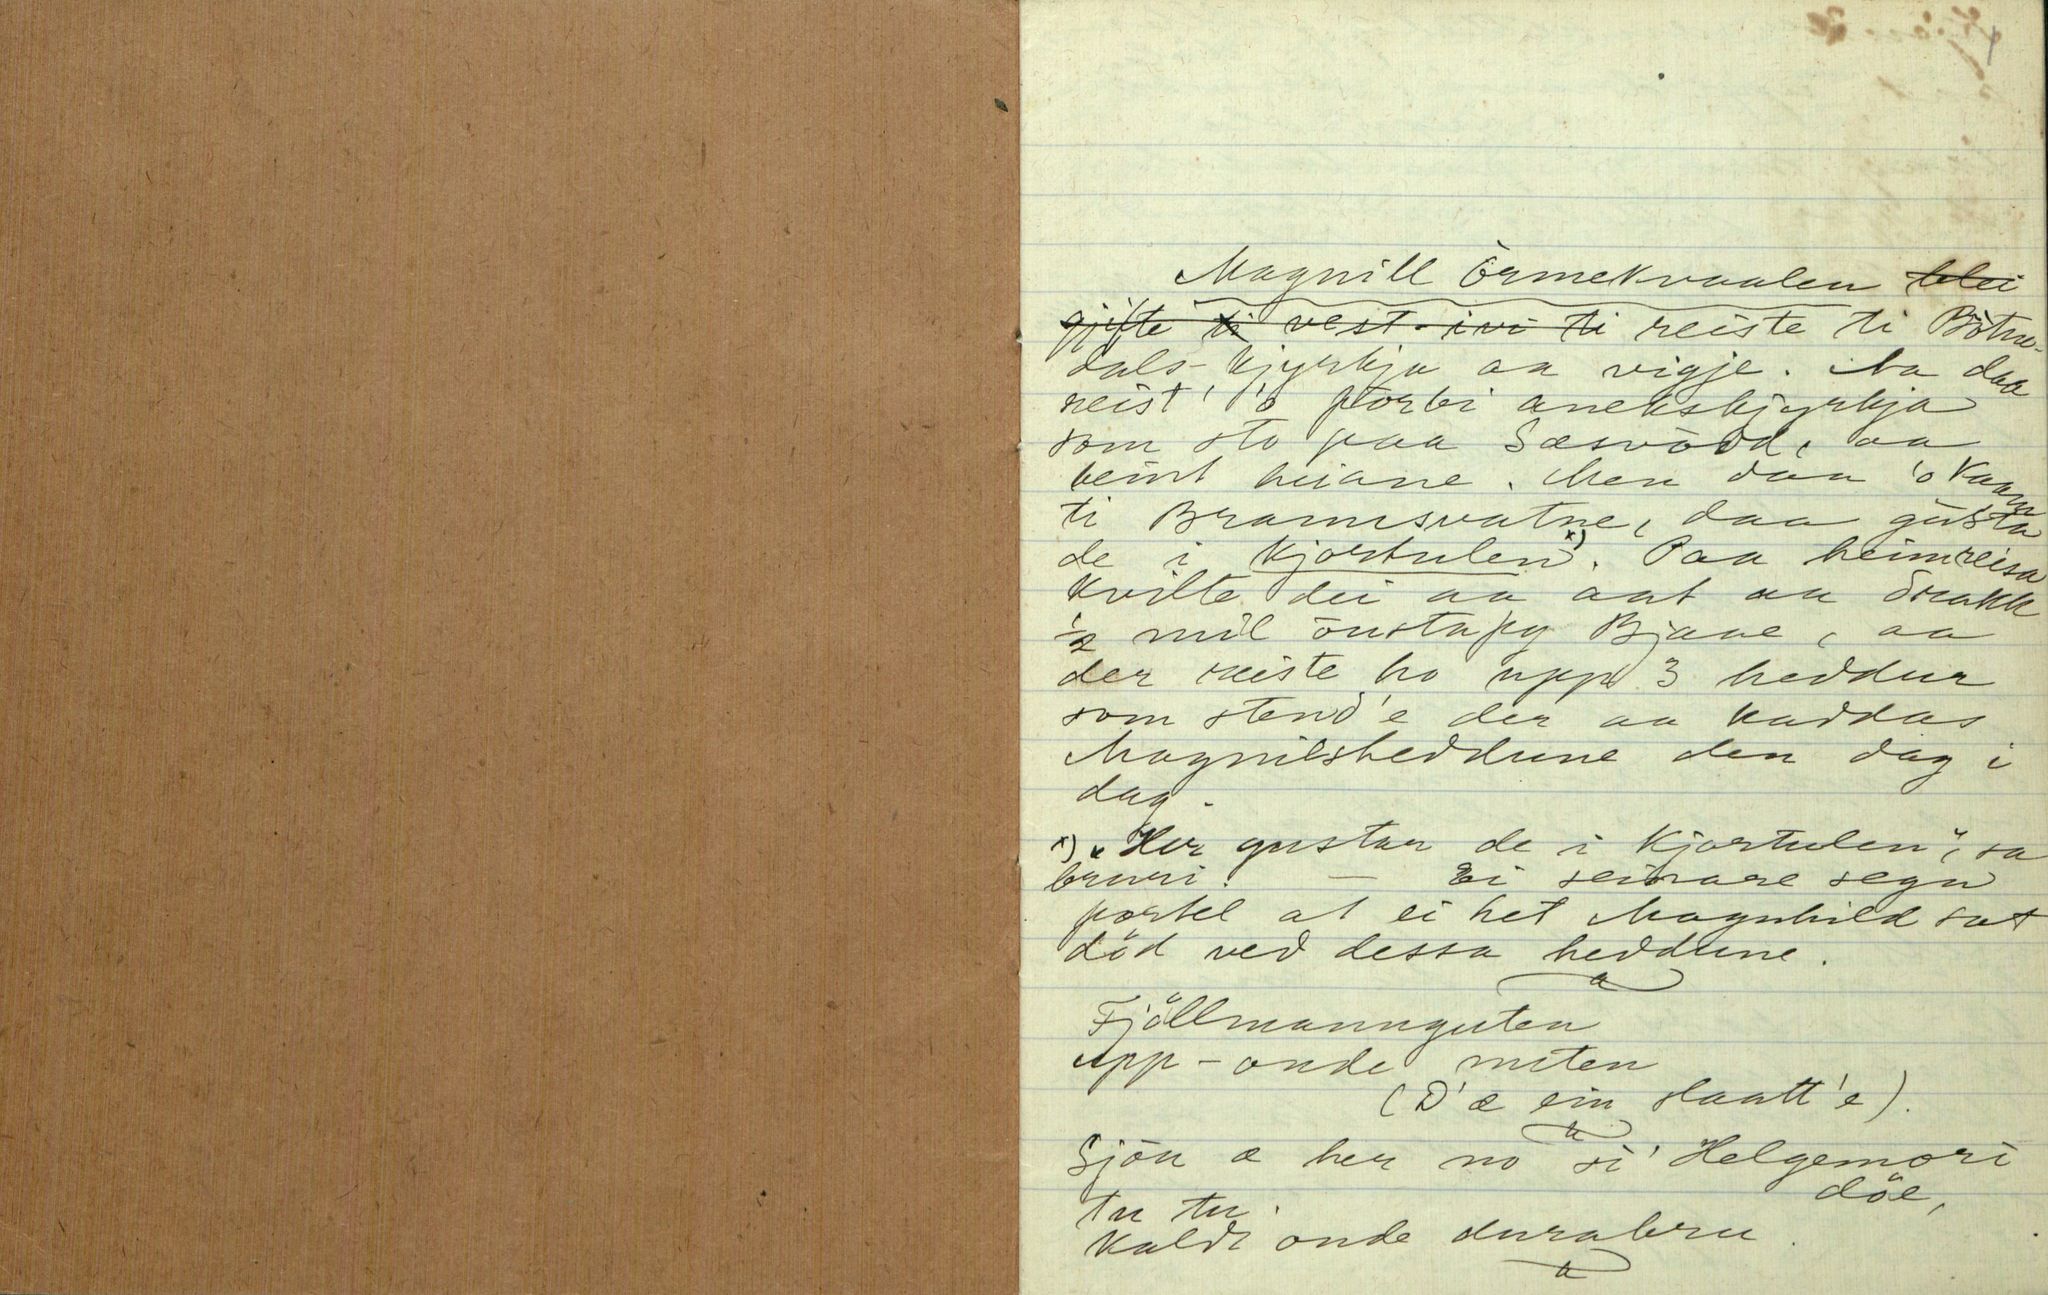 1
Magnill Òrmekvaalen blei
gjifte ti vest-ivi ti reiste ti Bòtne-
dals-kjyrkja aa vigje. Aa daa
reist' 'o fòrbi anekskjyrkja
som sto paa Sæsvòdd, aa
beint heiane. Men daa 'o kaam
ti Bramsvatne, daa gusta
de i kjortulen x). Paa heimreisa
kvilte dei aa aat aa drakk
½ mil òustapy Bjaae, aa
der reiste ho upp 3 heddur
som stend'e der aa kaddas
Magnilsheddune den dag i
dag.
x) "Her gustar de i kjortulen", sa
bruri. — Ei seinare segn
fortel at ei het Magnhild sat
död ved dessa heddune.
Fjöllmannguten
upp-onde nuten
(D'æ ein slaatt'e).
Sjòn æ her no si' Helgemori
döe,
tu tu.
Kaldt onde durabru.